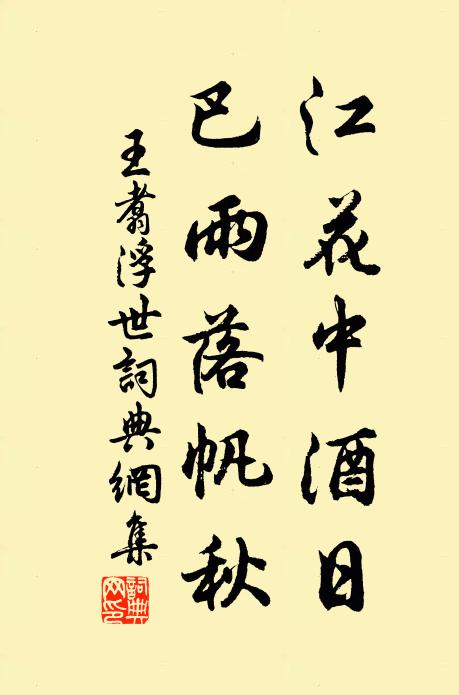 江花中酒日
巴雨落帆秋
王翥浮世詞典網集